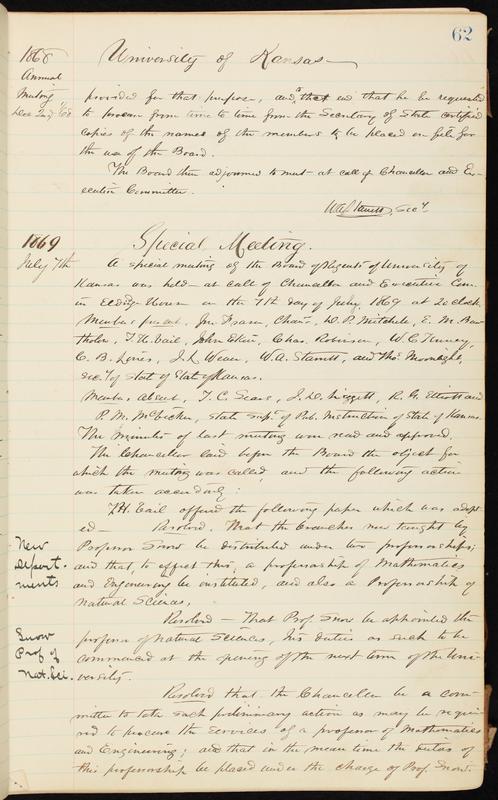 62
1868
Annual
Meeting
Dec 2nd /68
University of Kansas
provided for that purpose, and that he be requested
to procure from time to time from the Secretary of State certified
copies of the names of the members to be placed on file for
the use of the Board.
The Board then adjourned to meet at call of Chancellor and Ex-
ecutive Committee.
W.A. Starrett, Secy.
1869
July 7th
Special Meeting.
A special meeting of the Board of Regents of University of
Kansas was held at call of Chancellor and Executive Com.
in Eldridge House on the 7th day of July 1869 at 2 o'clock
Members present, Jno. Fraser, Chan., D. P. Mitchell, E. M. Bar-
tholow, T. H. Vail, John Ekin, Chas. Robinson, W. C. Tenney,
C. B. Lines, J. L. Wever, W. A. Starrett, and Thos. Moonlight,
Secy of State of State of Kansas.
Members Absent, T. C. Sears, J. D. Liggett, R. G. Elliott and
P. M. McVicker, State Supt. of Pub. Instruction of State of Kansas.
The minutes of last meeting were read and approved.
The Chancellor laid before the Board the object for
which the meeting was called and the following action
was taken accordingly:
T. H. Vail offered the following paper which was adopt-
ed — Resolved. That the branches now taught by
Professor Snow be distributed under two professorships;
and that, to effect this, a professorship of Mathematics
and Engineering be instituted, and also a Professorship of
Natural Sciences.
New
Depart-
ments
Resolved — That Prof. Snow be appointed the
professor of Natural Sciences, his duties as such to be
commenced at the opening of the next term of the Uni-
versity.
Snow
Prof of
Nat. Sci.
Resolved that the Chancellor be a com-
mittee to take such preliminary action as may be requi-
red to procure the services of a professor of Mathematics
and Engineering; and that in the mean time the duties of
this professorship be placed under the charge of Prof. Snow.